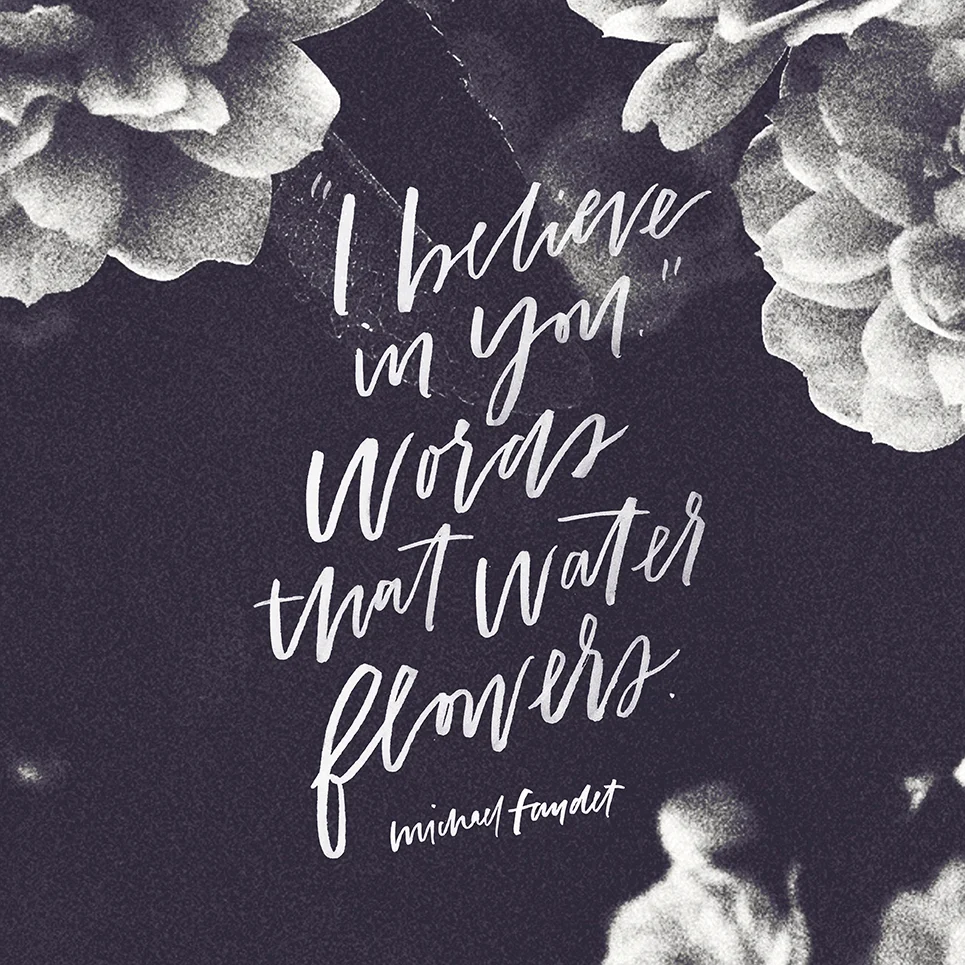 "I believe
in you."
Words
that water
flowers.
michael faudet